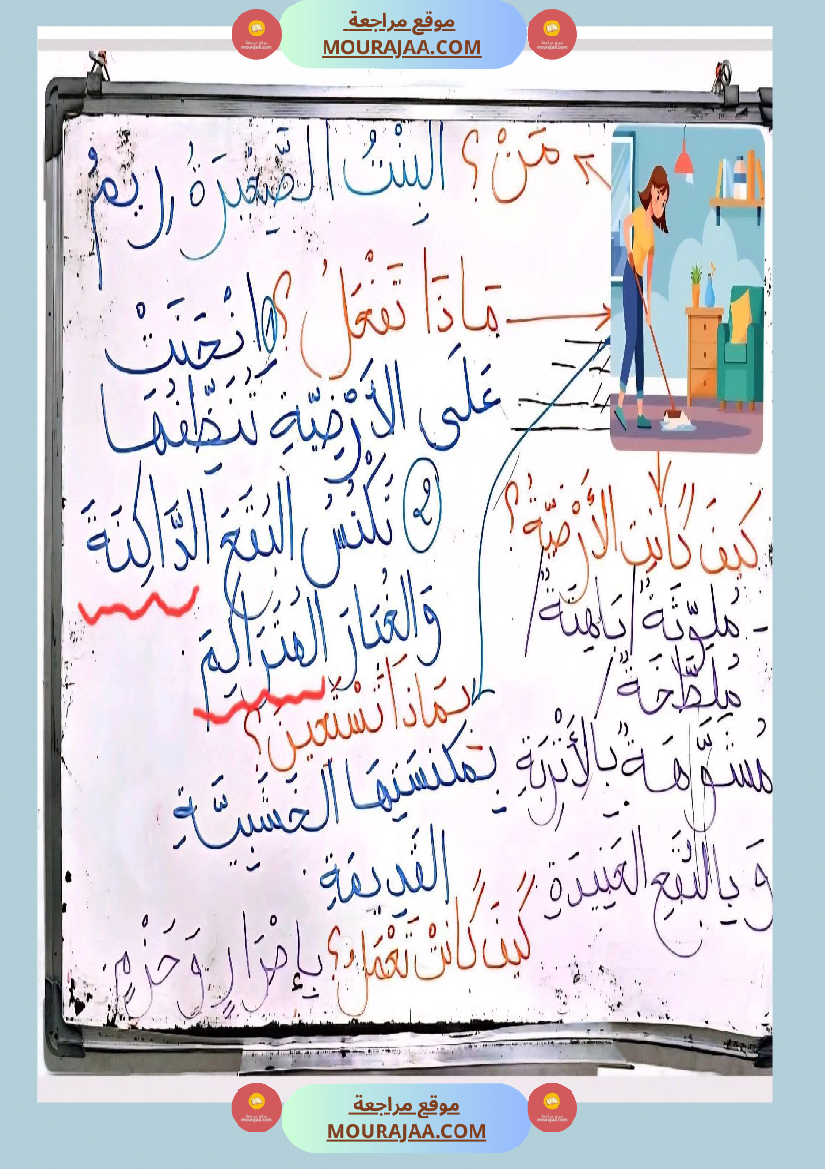 موقع مراجعة
MOURAJAA.COM
مَنْ؟ البِنْتُ الصَّغِيرَةُ رِيمُ
مَاذَا تَفْعَلُ؟ ① انْحَنَتْ
عَلَى الأَرْضِيَّةِ تُنَظِّفُهَا
② تَكْنُسُ البُقَعَ الدَّاكِنَةَ
وَالغُبَارَ المُتَرَاكِمَ
بِمَاذَا تَسْتَعِينُ؟
بِمِكْنَسَتِهَا الخَشَبِيَّةِ
القَدِيمَةِ
كَيْفَ كَانَتْ تَعْمَلُ؟ بِإِصْرَارٍ وَحَزْمٍ
كَيْفَ كَانَتِ الأَرْضِيَّةُ؟
- مُلَوَّثَةً / بَاهِتَةً /
مُلَطَّخَةً /
مُشَوَّهَةً بِالأَتْرِبَةِ
وَ بِالبُقَعِ العَنِيدَةِ
موقع مراجعة
MOURAJAA.COM